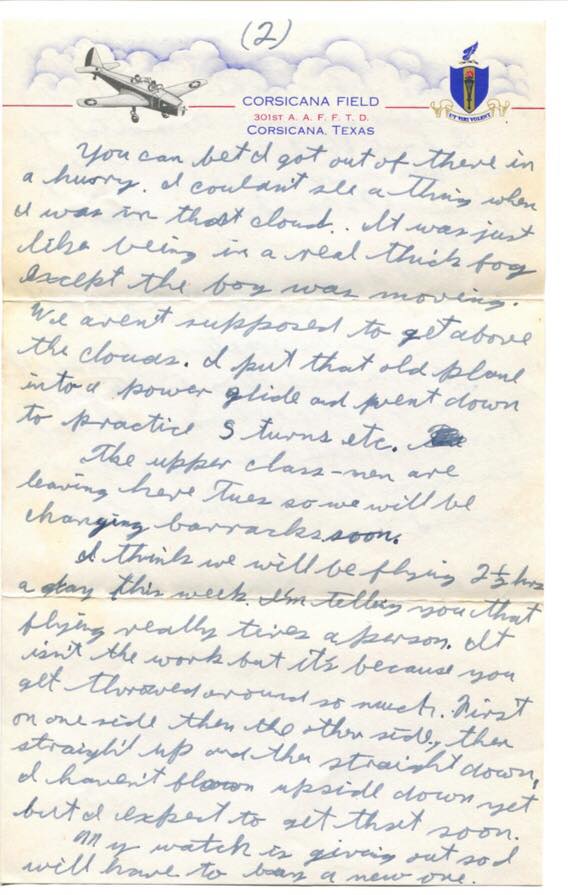 (2)
CORSICANA FIELD
301ST A. A. F. F. T. D.
CORSICANA, TEXAS
UT VIRI VOLENT
You can bet I got out of there in
a hurry. I couldn't see a thing when
I was in that cloud. It was just
like being in a real thick fog
except the fog was moving.
We aren't supposed to get above
the clouds. I put that old plane
into a power glide and went down
to practice S turns etc.
The upper class-men are
leaving here Tues so we will be
changing barracks soon.
I think we will be flying 2½ hrs
a day this week. I'm telling you that
flying really tires a person. It
isn't the work but it's because you
get throwed around so much. First
on one side then the other side, then
straight up and then straight down,
I haven't flown upside down yet
but I expect to get that soon.
My watch is giving out so I
will have to buy a new one.